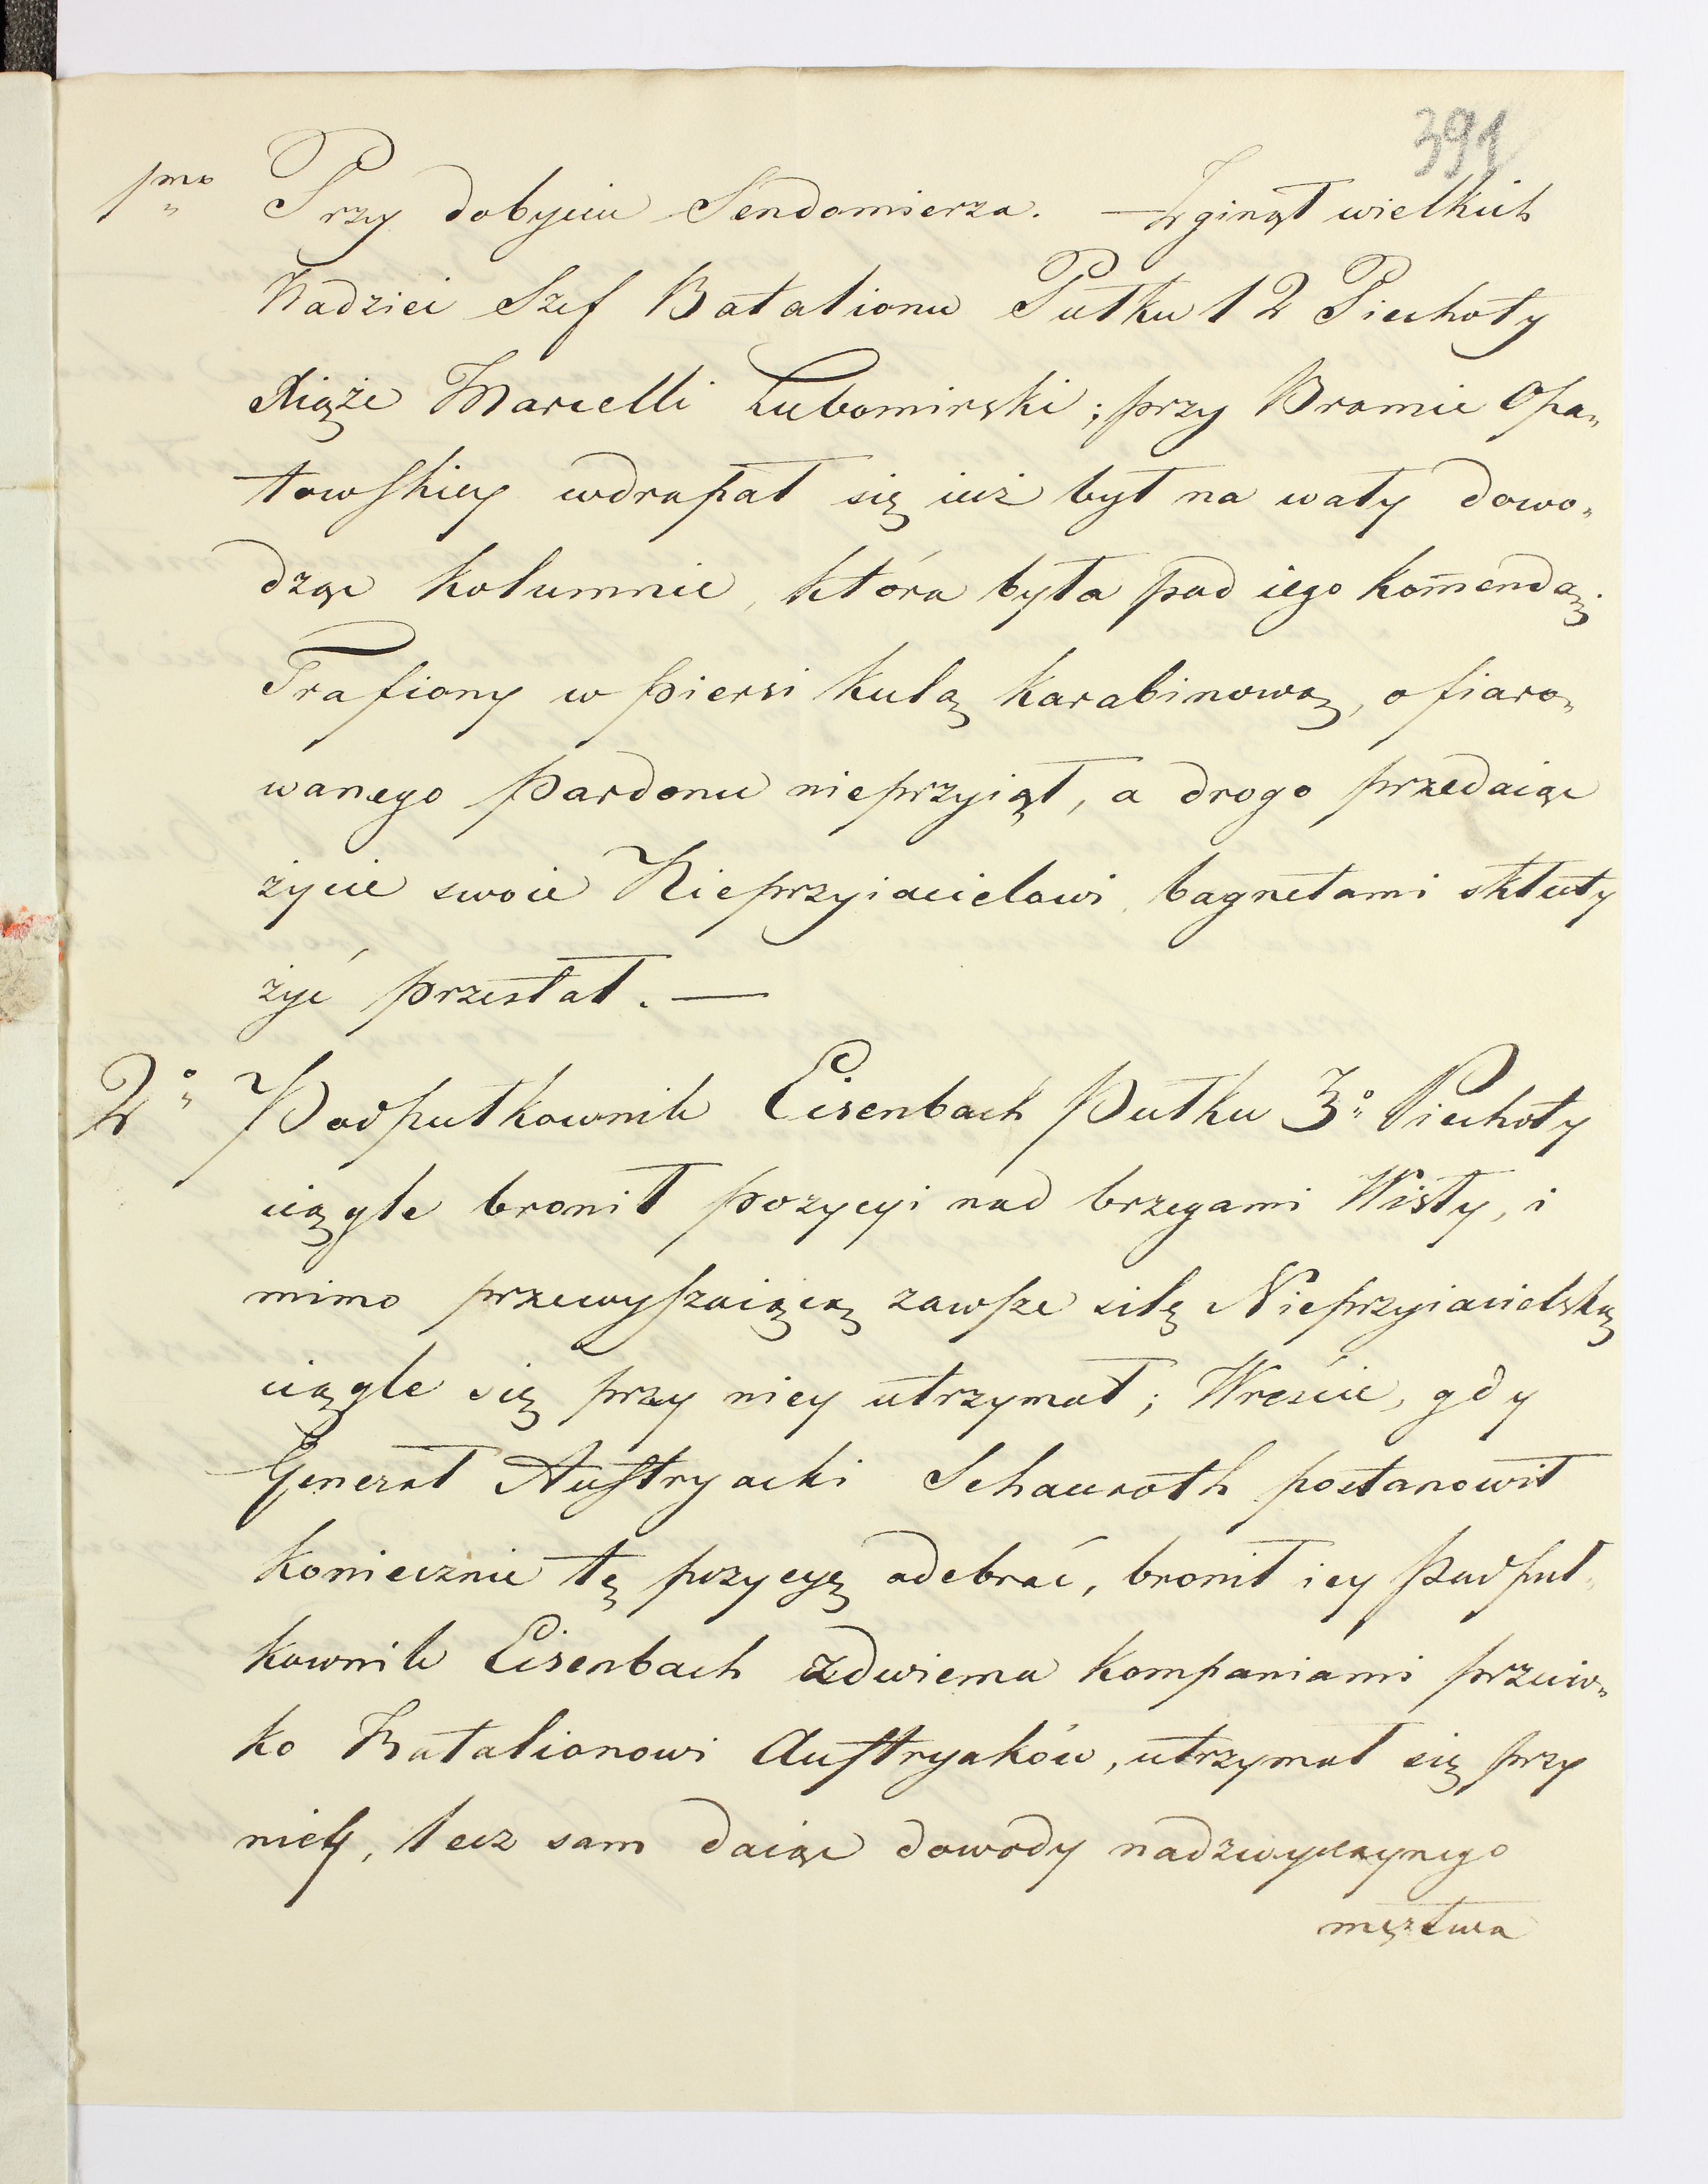 391
1mo Przy dobyciu Sendomierza. — Zginął wielkich
Nadziei Szef Batalionu Pułku 12 Piechoty
Xiąże Marcelli Lubomirski; przy Bramie Opa„
towskiey wdrapał się iuż był na wały dowo„
dząc kolumnie, która była pod iego kom̄endą.
Trafiony w piersi kulą karabinową, ofiaro„
wanego pardonu nieprzyiął, a drogo przedaiąc
życie swoie Nieprzyiacielowi bagnetami skłuty
żyć przestał. —
2o Podpułkownik Eisenbach Pułku 3o Piechoty
ciągle bronił pozycyi nad brzegami Wisły, i
mimo przewyższaiącą zawsze siłę Nieprzyiacielską
ciągle się przy niey utrzymał; Wreście, gdy
Generał Austryacki Schauroth postanowił
koniecznie tę pozycyę odebrać, bronił iey Podpuł„
kownik Eisenbach zdwiema kompaniami przeciw„
ko Batalionowi Austryaków, utrzymał się przy
niey, lecz sam daiąc dowody nadzwyczaynego
męztwa